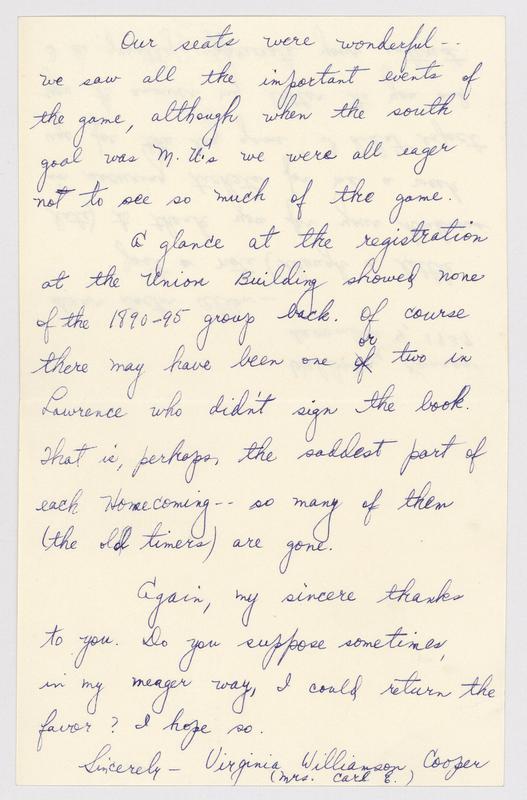 Our seats were wonderful--
we saw all the important events of
the game, although when the south
goal was M.U's we were all eager
not to see so much of the game.
A glance at the registration
at the Union Building showed none
of the 1890-95 group back. Of course
or
there may have been one of two in
Lawrence who didn't sign the book.
That is, perhaps, the saddest part of
each Homecoming-- so many of them
(the old timers) are gone.
Again, my sincere thanks
to you. Do you suppose sometimes,
in my meager way, I could return the
favor? I hope so.
Sincerely- Virginia Williamson Cooper
(Mrs. Carl E.)